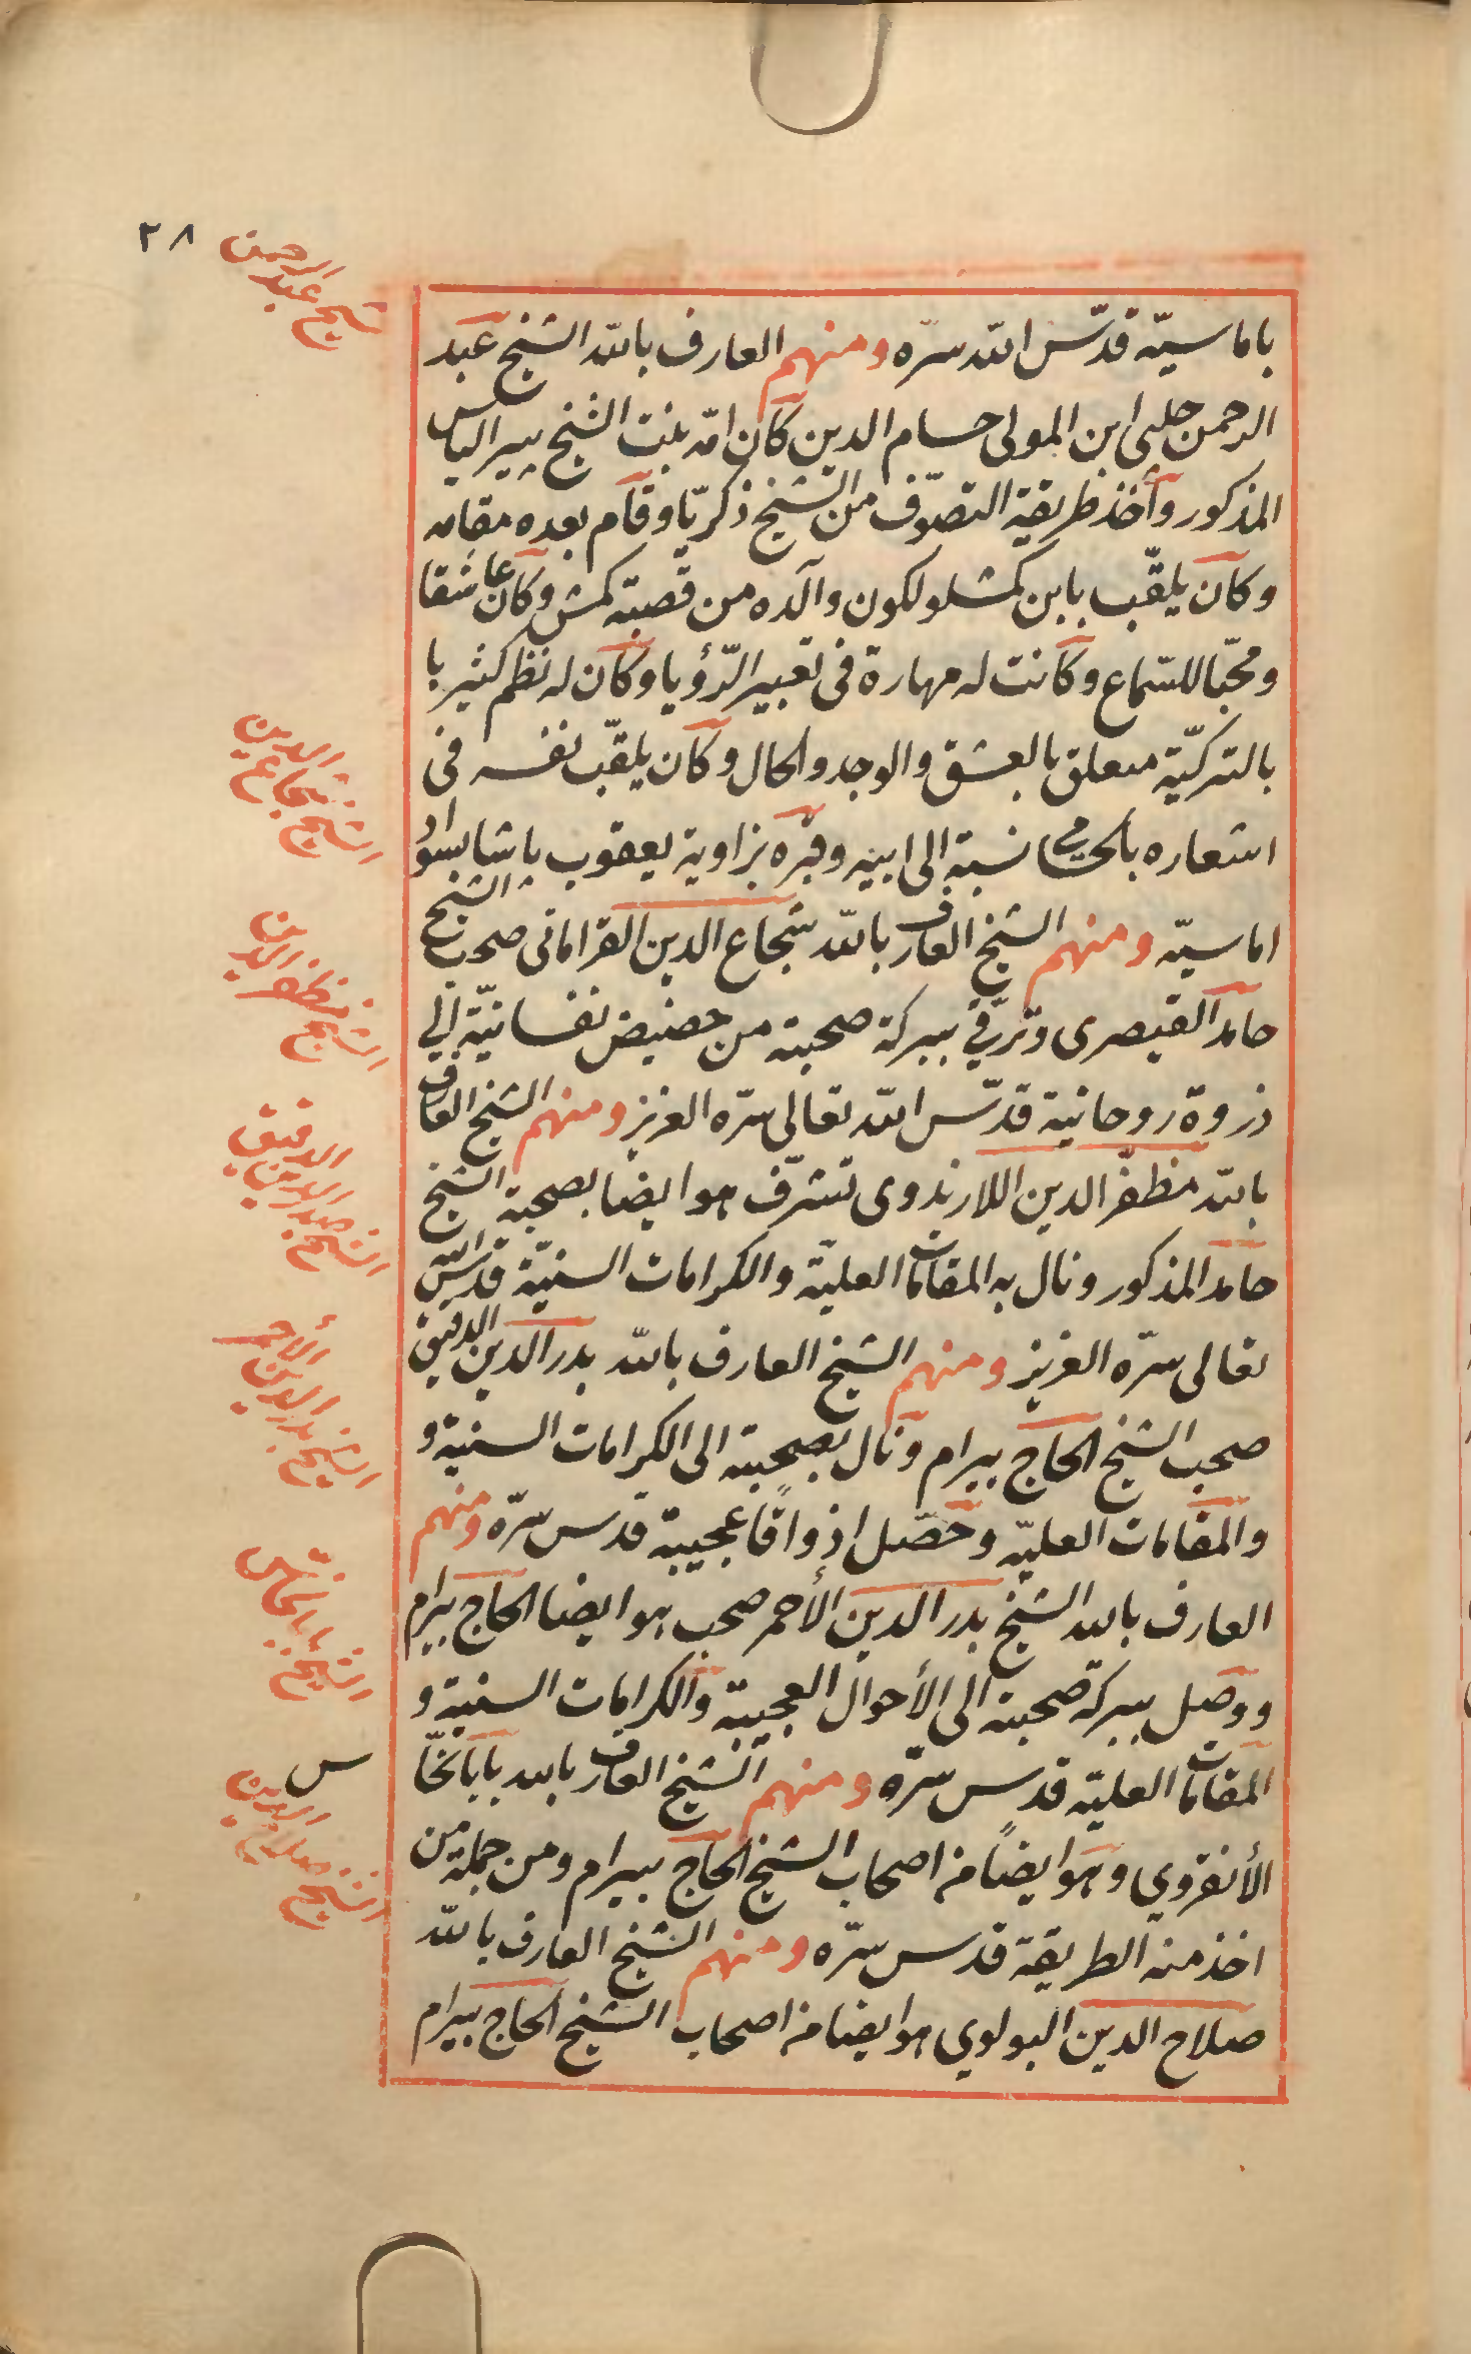 ٢٨
شيخ عبد الرحمن
باماسيّه قدّس الله سرّه ومنهم العارف بالله الشيخ عبد
الرحمن جلبى ابن المولى حسام الدين كان امّه بنت الشيخ پير الياس
المذكور وأخذ طريقة التصوّف من الشيخ ذكريّا وقام بعده مقامه
وكان يلقّب بابن كمشلو لكون والده من قصبة كمش وكان عاشقا
ومحبّا للسّماع وكانت له مهارة فى تعبير الرّؤيا وكان له نظم كثير با
بالتركيّة متعلق بالعشق والوجد والحال وكان يلقّب نفسه فى
اشعاره بالحسامى نسبة الى ابيه وقبره بزاوية يعقوب باشا بسواد
اماسيّه ومنهم الشيخ العارف بالله شجاع الدين القرامانى صحب الشيخ
حامد القيصرى وترقّى ببركة صحبته من حضيض نفسانيّة الي
ذروة روحانية قدّس الله تعالى سرّه العزيز ومنهم الشيخ العارف
بالله مظفّر الدين اللارندوى تشرّف هو ايضا بصحبة الشيخ
حامد المذكور ونال به المقامات العليّة والكرامات السنيّة قدس الله
تعالى سرّه العزيز ومنهم الشيخ العارف بالله بدر الدين الدقيق
صحب الشيخ الحاج بيرام ونال بصحبته الى الكرامات السنية و
والمقامات العليّه وحصّل اذواقا عجيبة قدس سرّه ومنهم
العارف بالله الشيخ بدر الدين الأحمر صحب هو ايضا الحاج بيرام
ووصل ببركة صحبته الى الأحوال العجيبة والكرامات السنية و
المقامات العليّه قدس سرّه ومنهم الشيخ العارف بالله بابا نخّا
س
الأنقروي وهو ايضاً من اصحاب الشيخ الحاج بيرام ومن جملة من
اخذ منه الطريقة قدس سرّه ومنهم الشيخ العارف بالله
صلاح الدين البولوي هو ايضا من اصحاب الشيخ الحاج بيرام
الشيخ شجاع الدين
الشيخ مظفر الدين
الشيخ بدر الدين الدقيق
الشيخ بدر الدين الأحمر
الشيخ بابا نخاس
الشيخ صلاح الدين